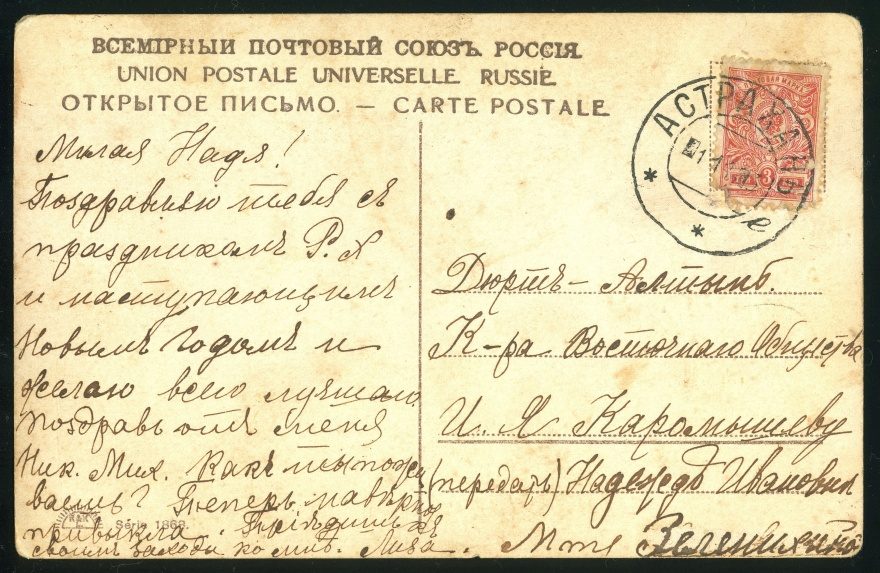 ВСЕМІРНЫЙ ПОЧТОВЫЙ СОЮЗЪ. РОССІЯ.
UNION POSTALE UNIVERSELLE. RUSSIE.
ОТКРЫТОЕ ПИСЬМО. — CARTE POSTALE.
АСТРАХАНЬ
3
Милая Надя!
Поздравляю тебя съ
праздникомъ Р. Х
и наступающимъ
Новымъ Годомъ и
желаю всего лучшаго.
поздравь отъ меня
Ник. Мих. Какъ ты пожи
ваешь? Теперь навѣрно
привыкла.
своимъ заходи ко мнѣ. Лиза.
Série 1868.
Дюртъ-Алтынъ.
К-ра Восточнаго Общества
И. Я Каромышеву
(передать) Надеждѣ Ивановнѣ